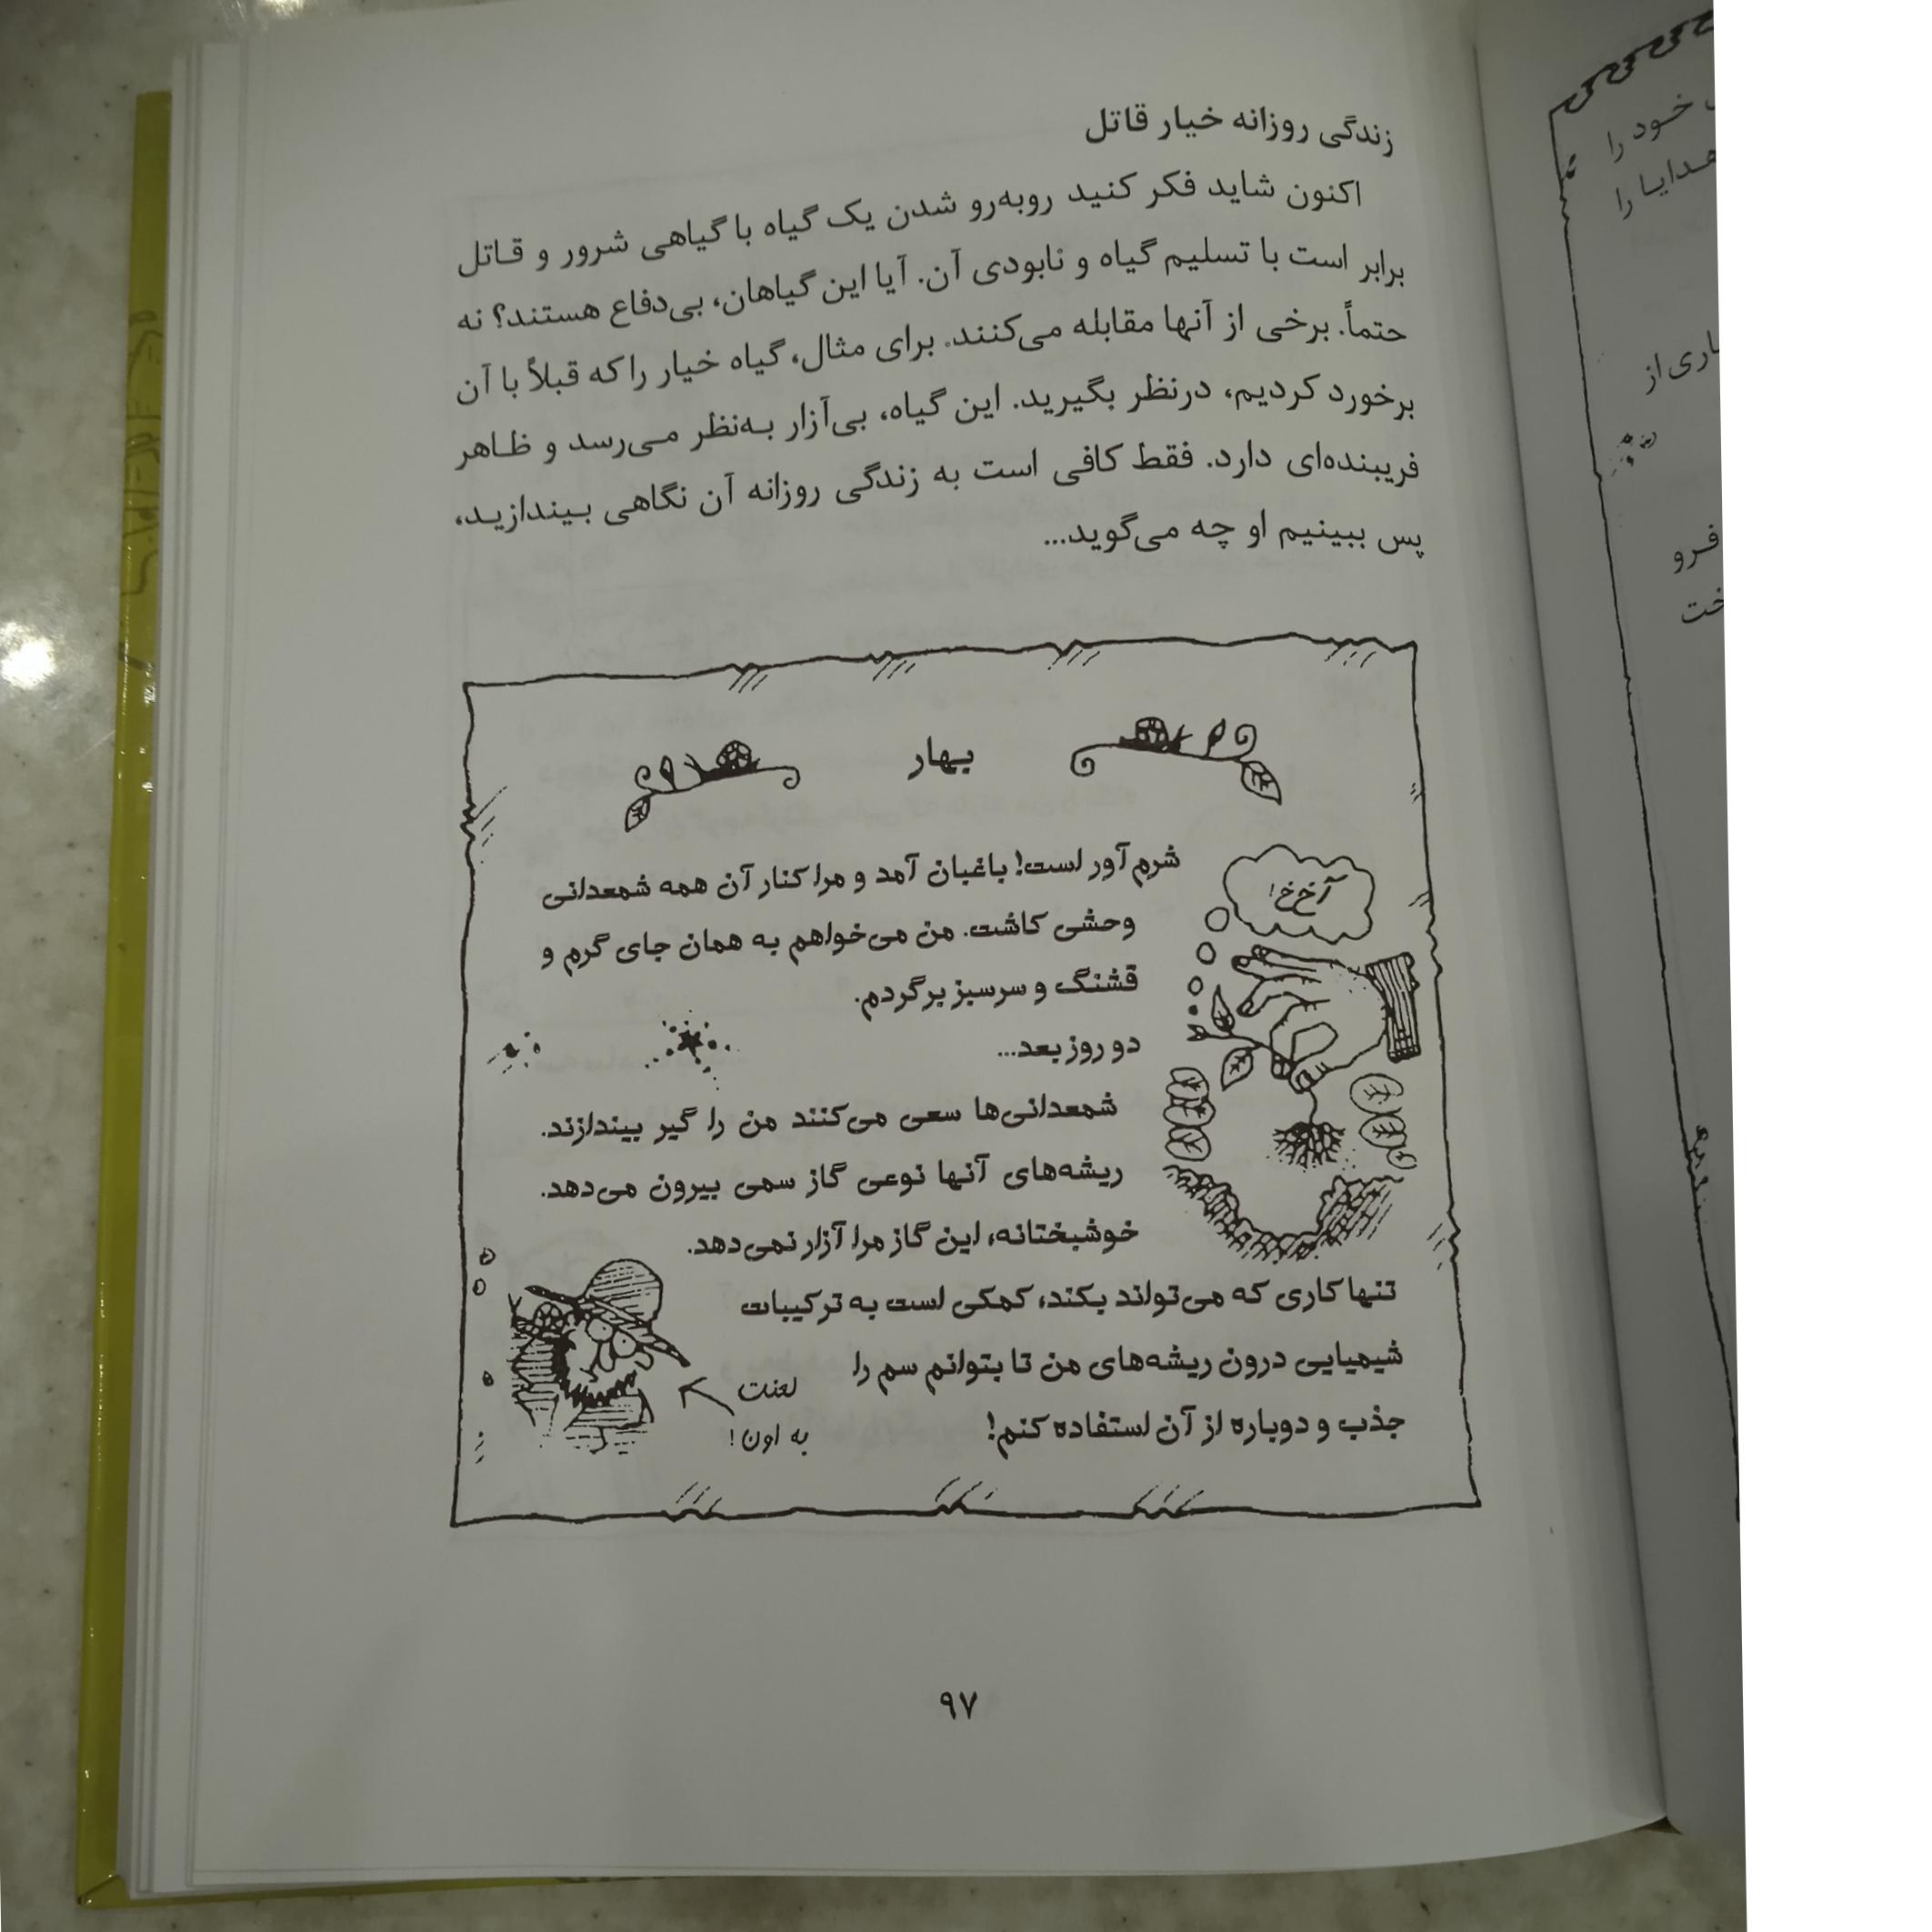 زندگی روزانه خیار قاتل
اکنون شاید فکر کنید روبه‌رو شدن یک گیاه با گیاهی شرور و قاتل
برابر است با تسلیم گیاه و نابودی آن. آیا این گیاهان، بی‌دفاع هستند؟ نه
حتماً. برخی از آنها مقابله می‌کنند. برای مثال، گیاه خیار را که قبلاً با آن
برخورد کردیم، درنظر بگیرید. این گیاه، بی‌آزار به‌نظر می‌رسد و ظاهر
فریبنده‌ای دارد. فقط کافی است به زندگی روزانه آن نگاهی بیندازید،
پس ببینیم او چه می‌گوید...
بهار
آخ‌خ‌خ!
شرم‌آور است! باغبان آمد و مرا کنار آن همه شمعدانی
وحشی کاشت. من می‌خواهم به همان جای گرم و
قشنگ و سرسبز برگردم.
دو روز بعد...
شمعدانی‌ها سعی می‌کنند من را گیر بیندازند.
ریشه‌های آنها نوعی گاز سمی بیرون می‌دهد.
خوشبختانه، این گاز مرا آزار نمی‌دهد.
تنها کاری که می‌تواند بکند، کمکی است به ترکیبات
شیمیایی درون ریشه‌های من تا بتوانم سم را
جذب و دوباره از آن استفاده کنم!
لعنت
به اون!
۹۷
خود را
هدایا را
فرو